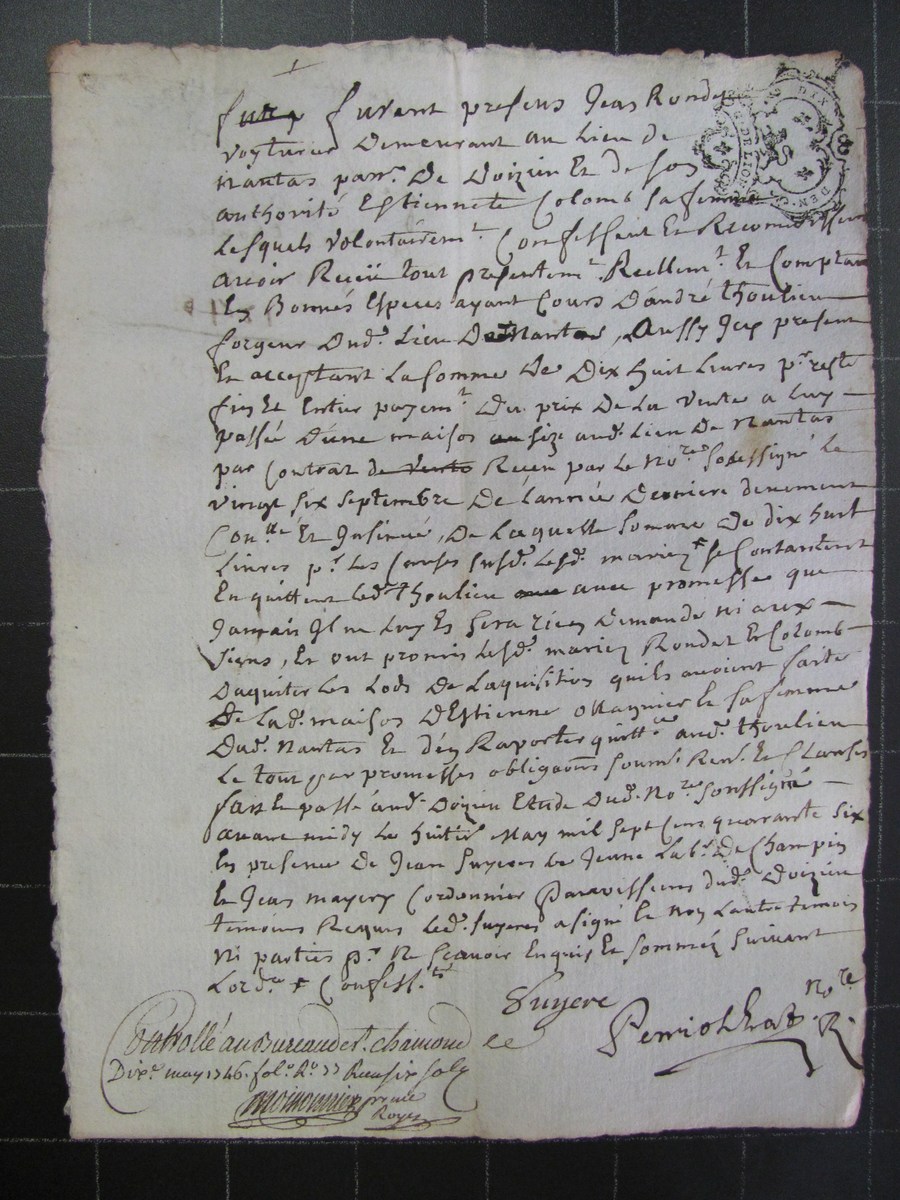 furent presens Jean Rondet
voyturier Demeurant au Lieu de
Nantas parr. De Doizieu Et de son
authorité Estiennete Colomb sa femme
Lesquels volontairemt. Confessent Et Reconnoissent
avoir Receu tout presentemt. Reellemt. Et Comptant
En Bonnes Especes ayant Cours D'andré thoulieu
forgeur Dud. Lieu De Nantas, aussy Icy present
Et acceptant La somme de Dix huit Livres pr. reste
fin Et Entier payemt. Du prix De La vente a luy
passée D'une maison size aud. Lieu De Nantas
par Contrat Receu par le Nore. Soussigné Le
vingt six septembre De L'année Derniere
Conllé Et Insinué, De Laquelle somme De dix huit
Livres pr. Les Causes susd. Lesd. mariez se Contantent
En quittent Led. thoulieu avec promesse que
Jamais Il ne Luy En sera rien Demandé ni aux
siens, Et ont promis Lesd. mariez Rondet Et Colomb
D'aquiter Les Lods De L'aquisition quils avoient faite
De Lad. maison D'Estienne Et sa femme
Dud. Nantas Et d'en Raporter quittce. aud. thoulieu
Le tout par promesses obligaons soumi. Ren. Et Clauses
fait Et passé aud. Doizieu Etude Dud. Nore. Soussigné
avant midy Le huitie. May mil sept Cens quarante six
En presence De Jean Juyere le Jeune Lab. De Champin
Et Jean mayery Cordonnier Paroissiens dud. Doizieu
temoins Requis Led. Juyere a signé Et non L'autre temoin
Ni parties pr. Ne scavoir Enquis Et sommez suivant
L'ord.ce Confess.t
Juyere
Perriolhat Nore. R.
Controllé au Bureau de St. chamond Le
Dixe. may 1746. fol. Ro. 33 Receu six sols